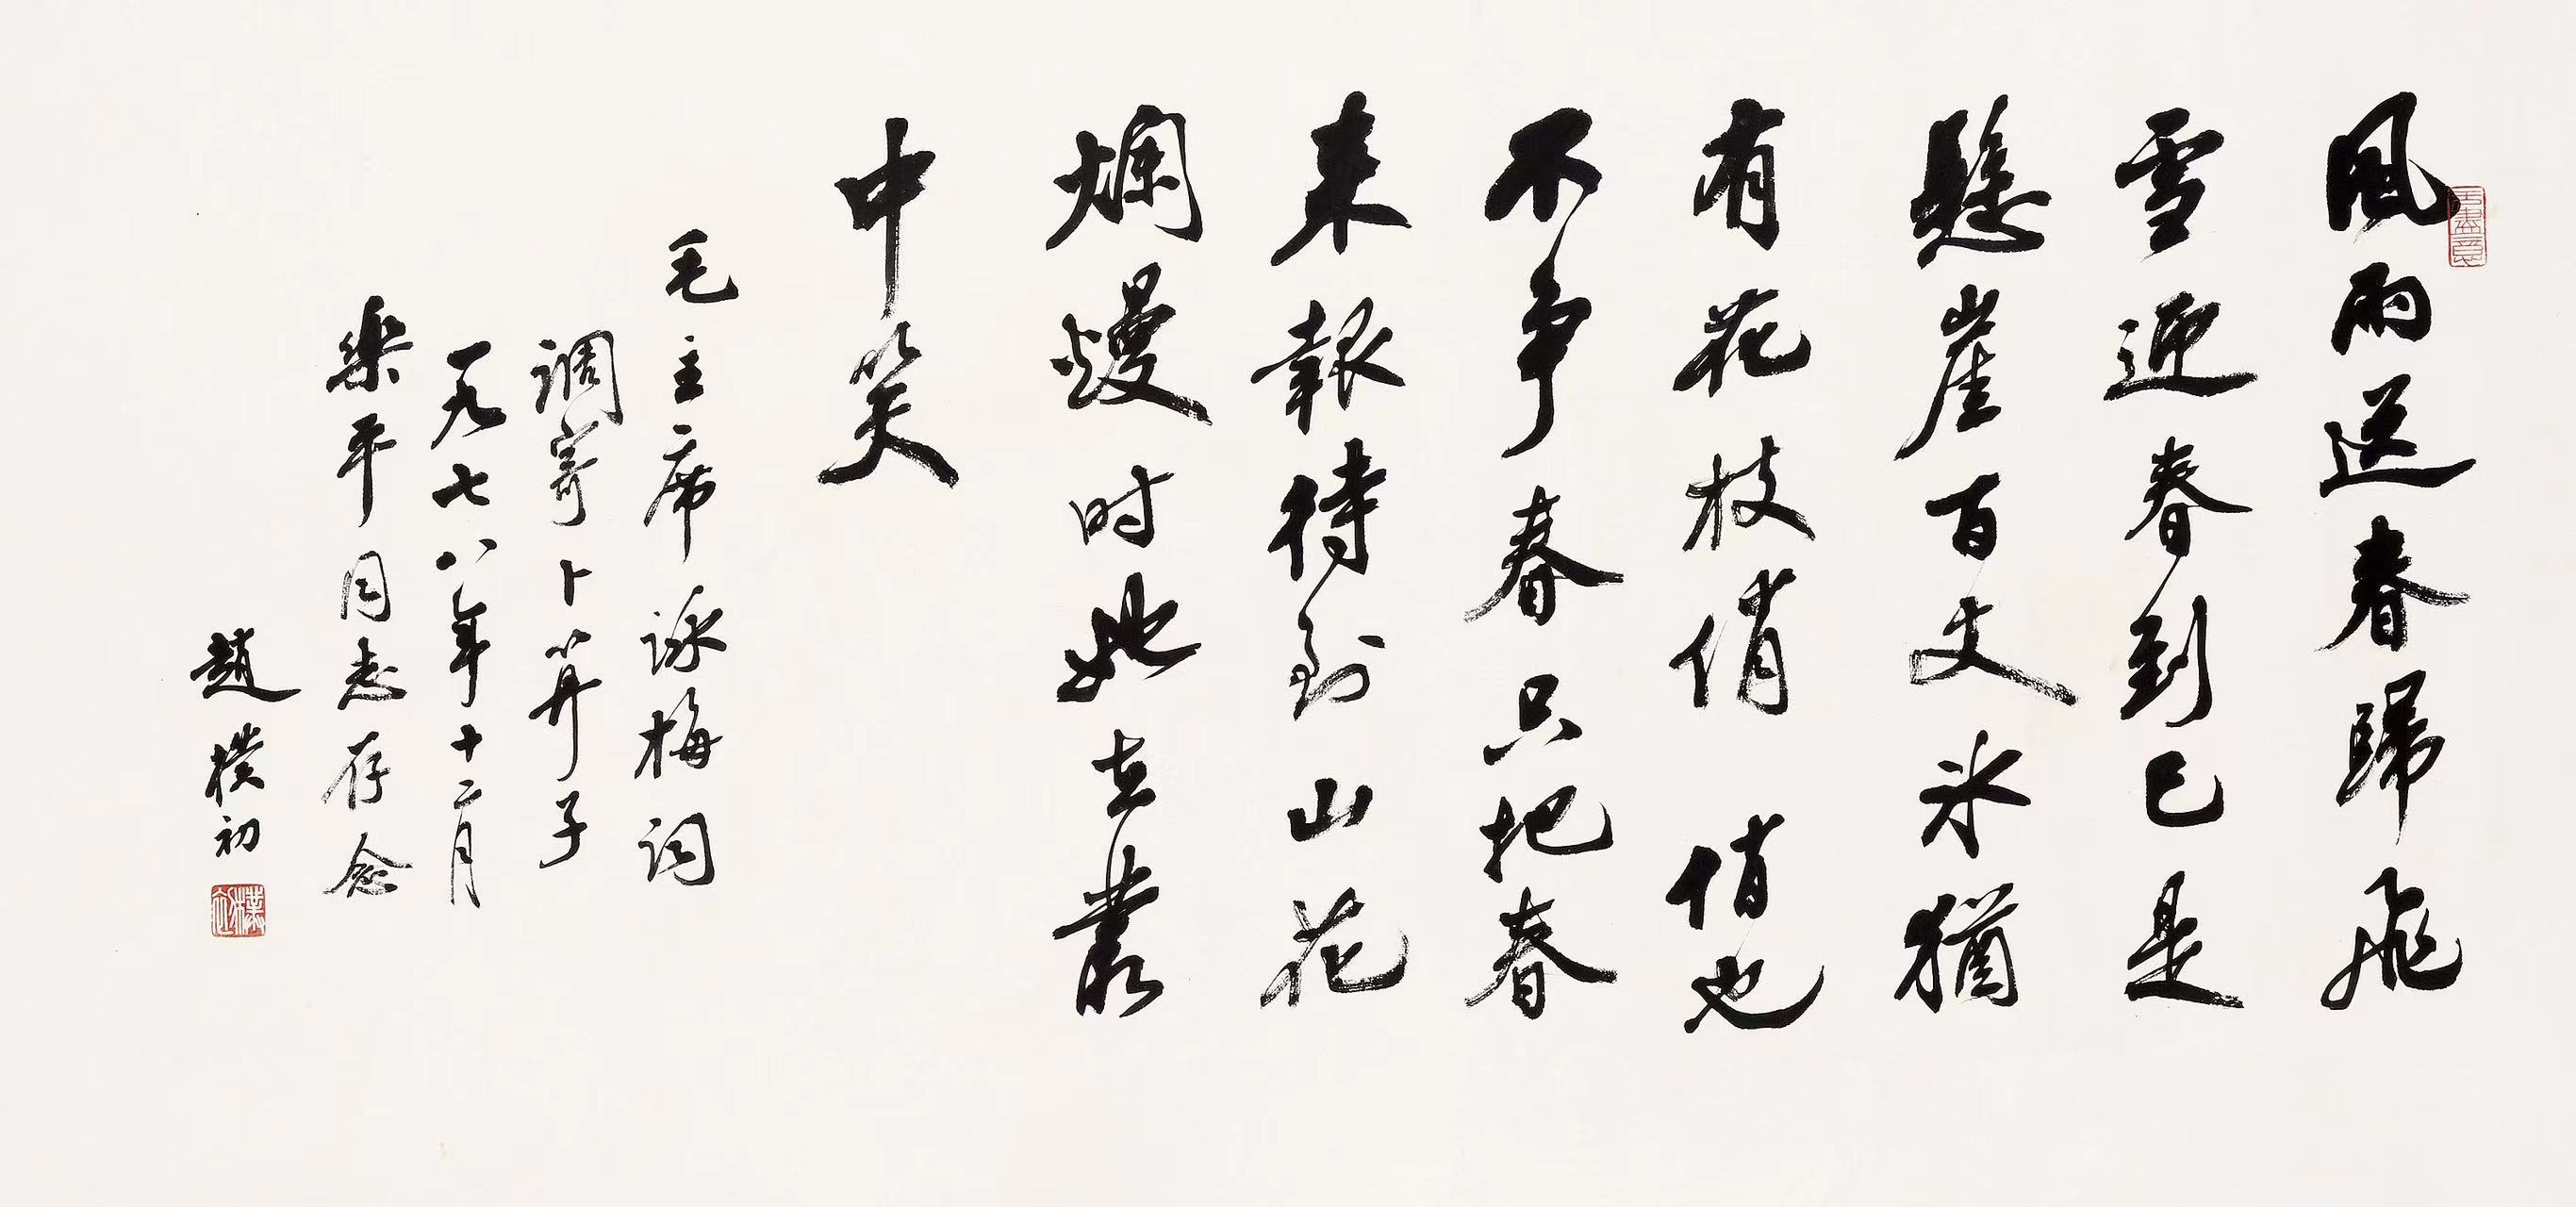 風雨送春歸飛
雪迎春到已是
懸崖百丈冰猶
有花枝俏 俏也
不爭春只把春
来報待到山花
爛熳时她在叢
中笑
毛主席詠梅詞
調寄卜算子
一九七八年十二月
樂平同志存念
趙樸初
樸初
无盡意